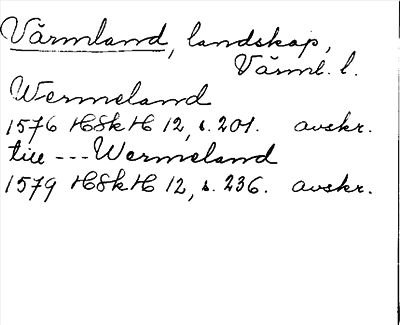 Värmland, landskap,
Värml. l.
Wermeland
1576 HSkH 12, s. 201. avskr.
till --- Wermeland
1579 HSkH 12, s. 236. avskr.